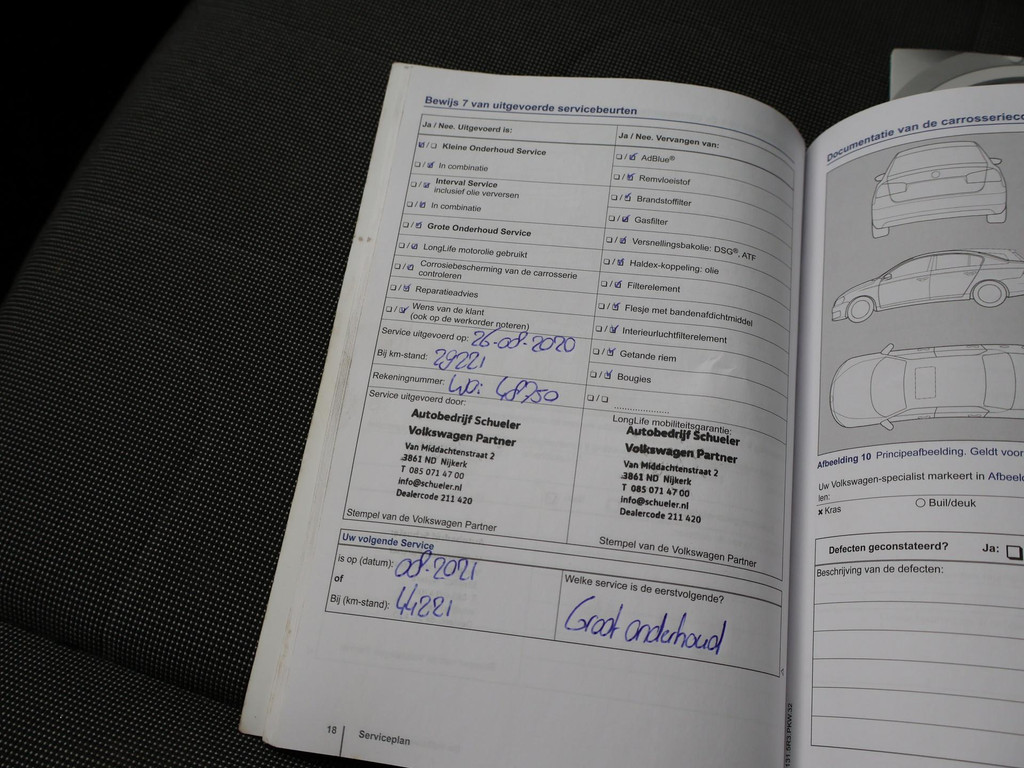 Bewijs 7 van uitgevoerde servicebeurten
Ja / Nee. Uitgevoerd is:
Kleine Onderhoud Service
In combinatie
Interval Service
inclusief olie verversen
In combinatie
Grote Onderhoud Service
LongLife motorolie gebruikt
Corrosiebescherming van de carrosserie
controleren
Reparatieadvies
Wens van de klant
(ook op de werkorder noteren)
Service uitgevoerd op: 26-08-2020
Bij km-stand: 29221
Rekeningnummer: WO: 48750
Service uitgevoerd door:
Autobedrijf Schueler
Volkswagen Partner
Van Middachtenstraat 2
3861 ND Nijkerk
T 085 071 47 00
info@schueler.nl
Dealercode 211 420
Stempel van de Volkswagen Partner
Ja / Nee. Vervangen van:
AdBlue®
Remvloeistof
Brandstoffilter
Gasfilter
Versnellingsbakolie: DSG®, ATF
Haldex-koppeling: olie
Filterelement
Flesje met bandenafdichtmiddel
Interieurluchtfilterelement
Getande riem
Bougies
LongLife mobiliteitsgarantie:
Autobedrijf Schueler
Volkswagen Partner
Van Middachtenstraat 2
3861 ND Nijkerk
T 085 071 47 00
info@schueler.nl
Dealercode 211 420
Stempel van de Volkswagen Partner
Uw volgende Service
is op (datum): 08-2021
of
Bij (km-stand): 44221
Welke service is de eerstvolgende?
Groot onderhoud
18 Serviceplan
Documentatie van de carrosseriec
Afbeelding 10 Principeafbeelding. Geldt voor
Uw Volkswagen-specialist markeert in Afbeel
len:
x Kras
Buil/deuk
Defecten geconstateerd? Ja:
Beschrijving van de defecten:
131.5R3.PKW.32